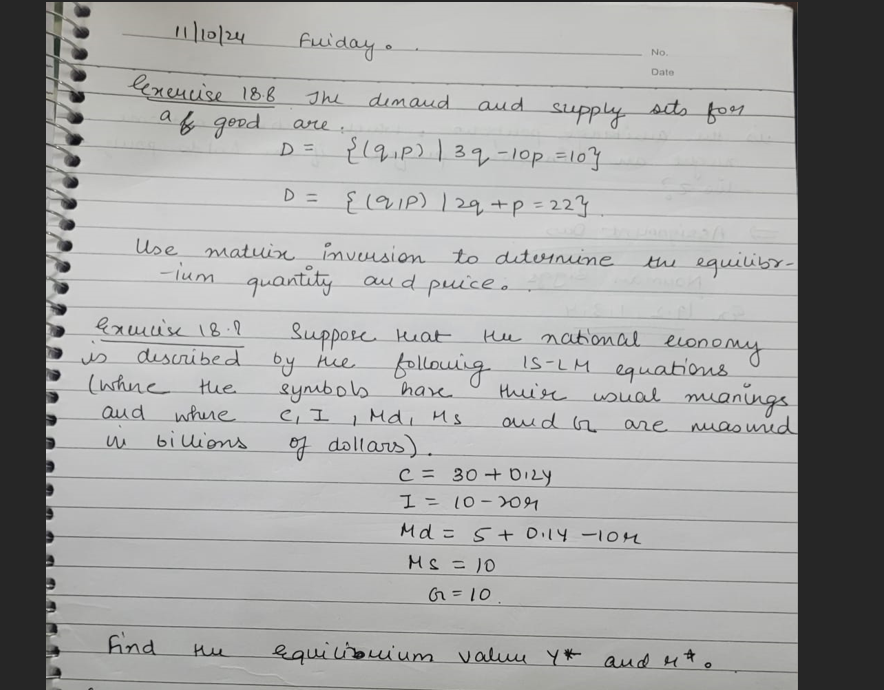 11/10/24 Friday.
No.
Date
Exercise 18.8 The demand and supply sets for
a good are.
D = {(q,p) | 3q -10p =10}
D = {(q,p) | 2q + p = 22}.
Use matrix inversion to determine the equilibr-
-ium quantity and price.
Exercise 18.9 Suppose that the national economy
is described by the following IS-LM equations
(where the symbols have their usual meanings
and where C, I, Md, Ms and G are measured
in billions of dollars).
C = 30 + 0.2Y
I = 10 - 20r
Md = 5 + 0.1Y - 10r
Ms = 10
G = 10.
Find the equilibrium value Y* and r*.